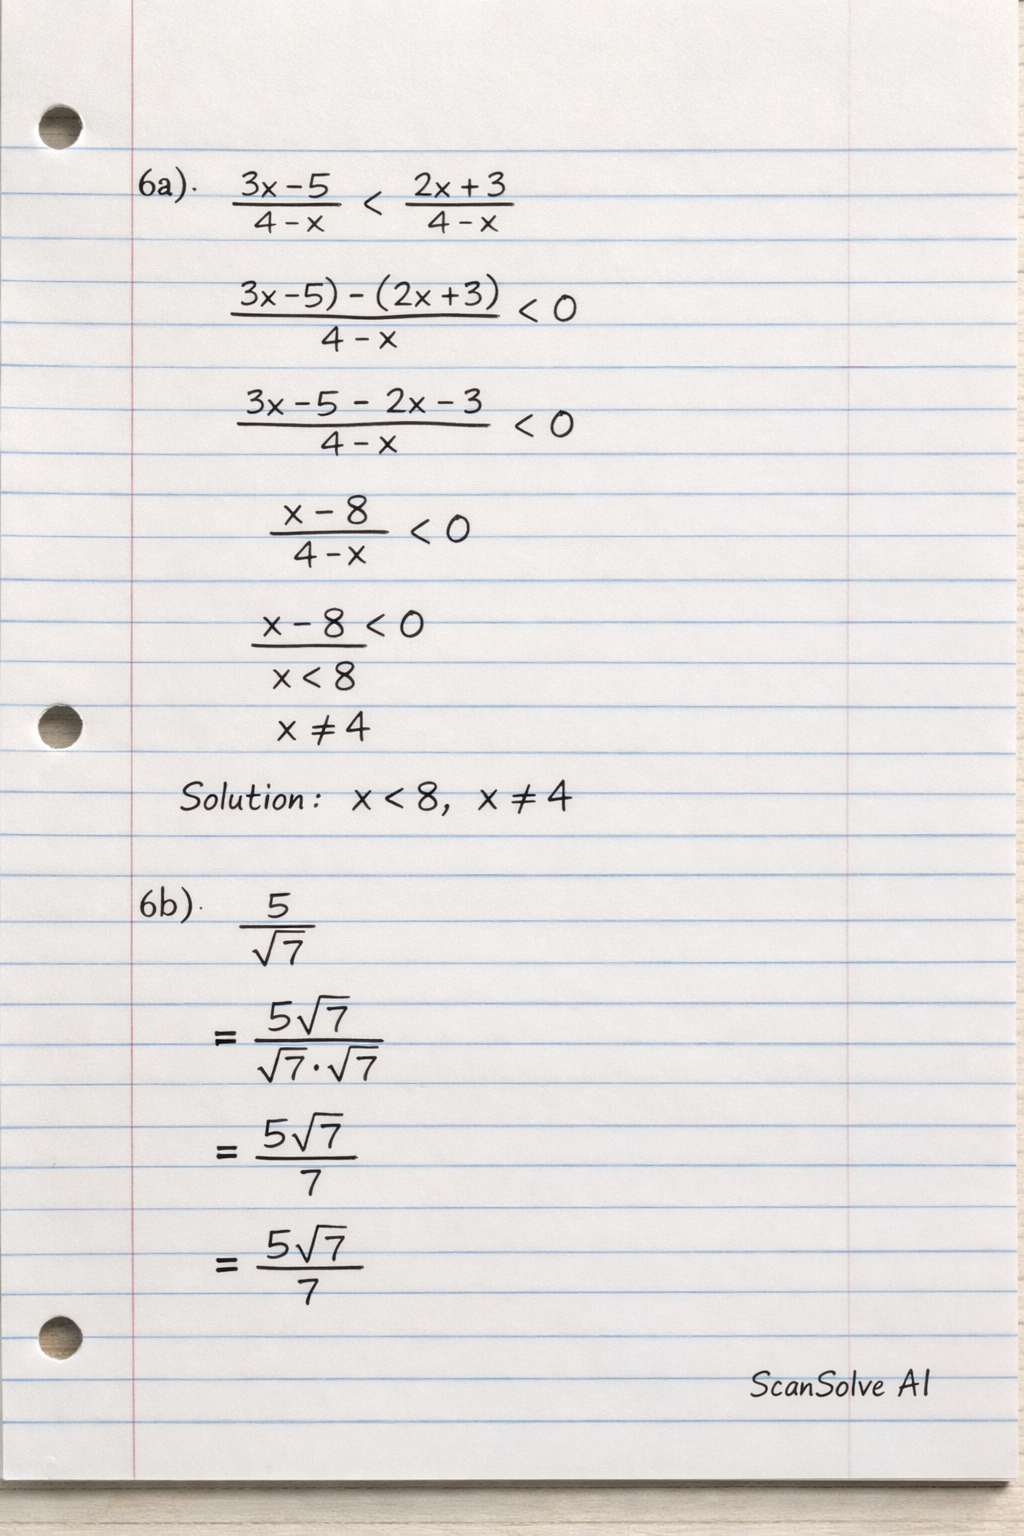 6a). 3x-5 / 4-x < 2x+3 / 4-x
3x-5) - (2x+3) / 4-x < 0
3x-5 - 2x-3 / 4-x < 0
x-8 / 4-x < 0
x-8 < 0
x < 8
x ≠ 4
Solution: x < 8, x ≠ 4
6b). 5 / √7
= 5√7 / √7·√7
= 5√7 / 7
= 5√7 / 7
ScanSolve AI